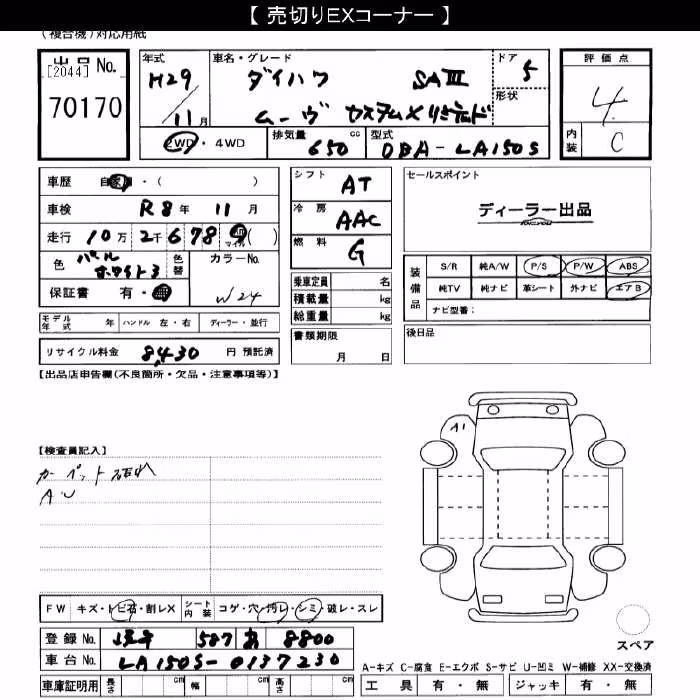 【 売切りEXコーナー 】
(複合機)対応用紙
出品 No.
[2044]
70170
年式
H29
/11月
2WD・4WD
車名・グレード
ダイハツ SAⅢ
ムーヴ カスタムX リミテッド
ドア
5
形状
排気量
650 cc
型式
DBA-LA150S
評価点
4
内装
C
車歴 自家用・( )
車検 R8年 11月
走行 10万 2千 678 マイル ( )
色 パールホワイト3
色替
カラーNo.
W24
保証書 有・無
モデル年式 年 ハンドル 左・右 ディーラー・並行
リサイクル料金 8,430 円 預託済
シフト AT
冷房 AAC
燃料 G
乗車定員 名
積載量 kg
総重量 kg
書類期限
月 日
セールスポイント
ディーラー出品
装備品
S/R 純A/W P/S P/W ABS
純TV 純ナビ 革シート 外ナビ エアB
ナビ型番:
後日品
【出品店申告欄(不良箇所・欠品・注意事項等)】
【検査員記入】
カーペット
AU
A1
FW キズ・トビ石・割レX
シート内装 コゲ・穴・汚レ・シミ・破レ・スレ
登録 No. 587 あ 8800
車台 No. LA150S-0137230
車庫証明用 長さ cm 幅 cm 高さ cm
スペア
A-キズ C-腐食 E-エクボ S-サビ U-凹ミ W-補修 XX-交換済
工具 有・無 ジャッキ 有・無